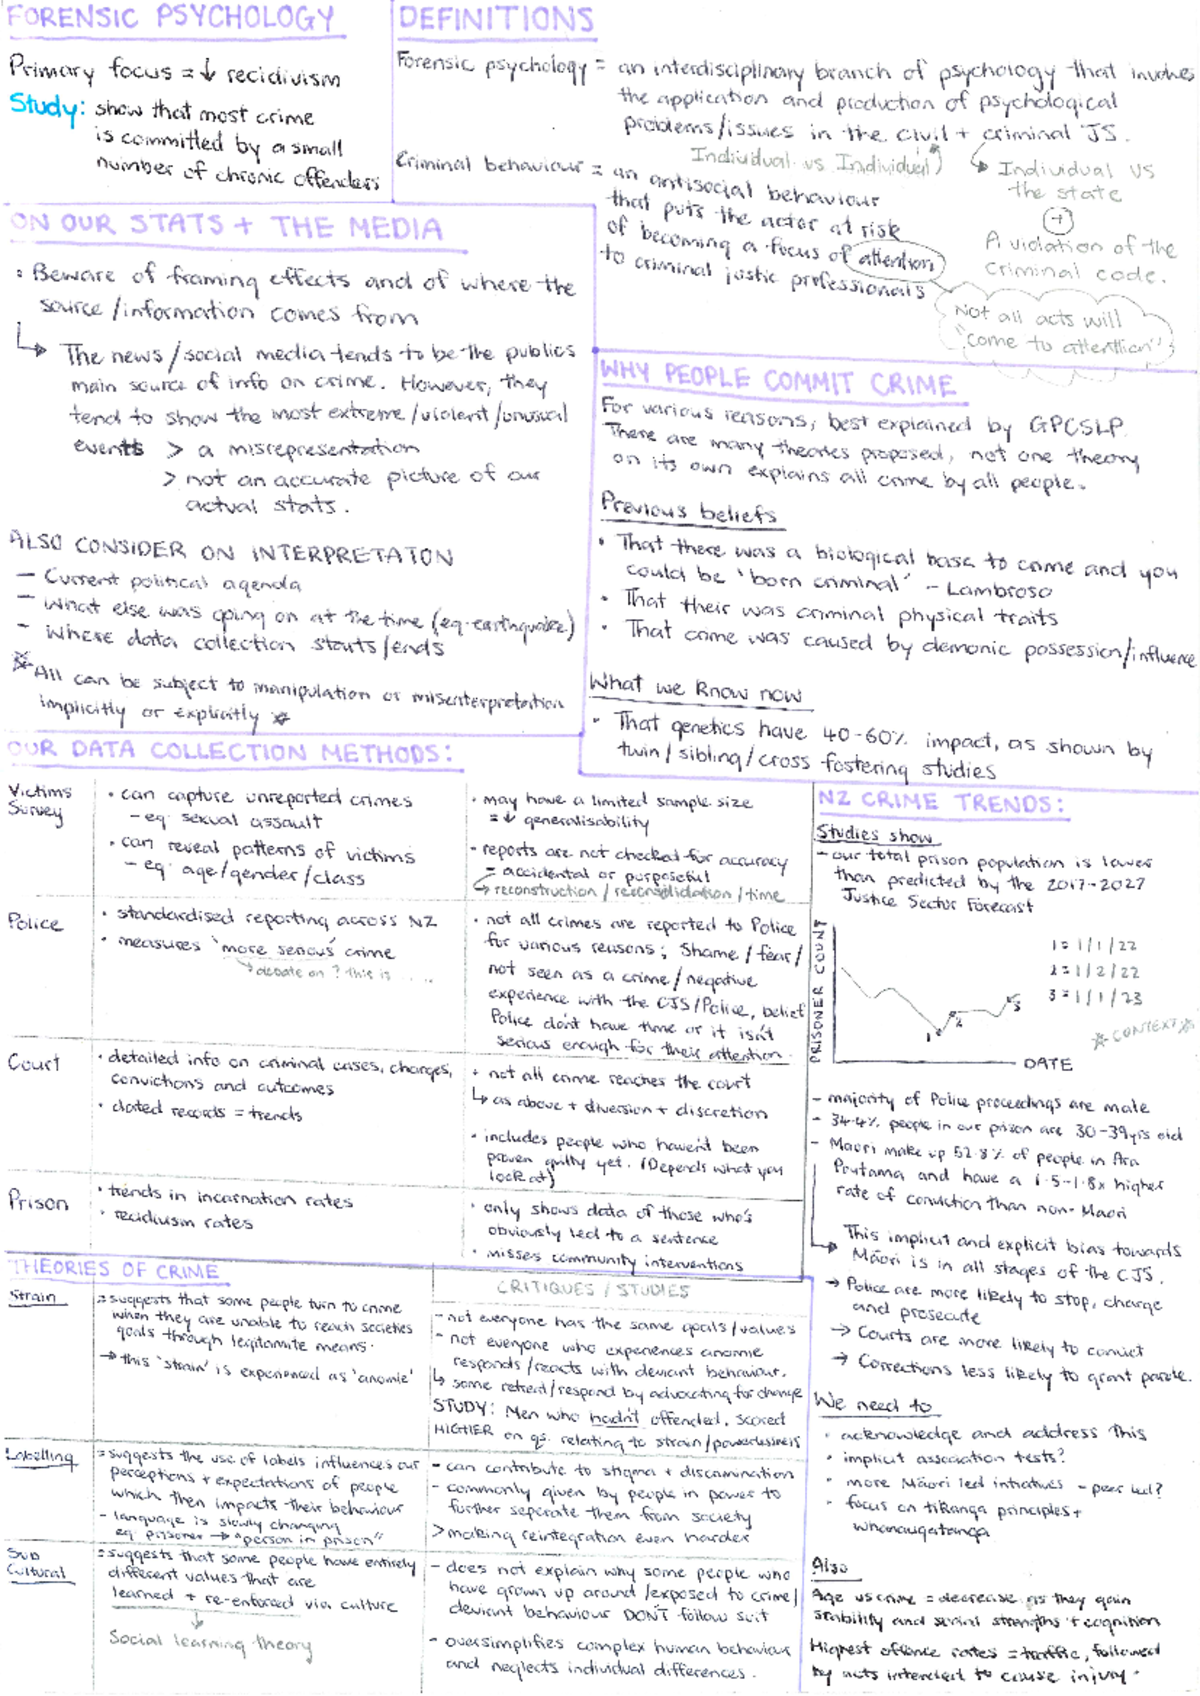 FORENSIC PSYCHOLOGY
Primary focus = ↓ recidivism
Study: show that most crime
is committed by a small
number of chronic offenders
DEFINITIONS
Forensic psychology = an interdisciplinary branch of psychology that involves
the application and production of psychological
problems/issues in the civil + criminal JS.
Individual vs Individual
↳ Individual vs
the state
+
A violation of the
criminal code.
Criminal behaviour = an antisocial behaviour
that puts the actor at risk
of becoming a focus of attention
to criminal justic professionals
Not all acts will
"come to attenttion"
ON OUR STATS + THE MEDIA
• Beware of framing effects and of where the
source/information comes from
↳ The news/social media tends to be the publics
main source of info on crime. However, they
tend to show the most extreme/violent/unusual
events > a misrepresentation
> not an accurate picture of our
actual stats.
ALSO CONSIDER ON INTERPRETATON
- Current political agenda
- What else was going on at the time (eq. earthquake)
- Where data collection starts/ends
* All can be subject to manipulation or misenterpretation
implicitly or explicitly *
WHY PEOPLE COMMIT CRIME
For various reasons, best explained by GPCSLP.
There are many theories proposed, not one theory
on its own explains all crime by all people.
Previous beliefs
• That there was a biological base to crime and you
could be 'born criminal' - Lambroso
• That their was criminal physical traits
• That crime was caused by demonic possession/influence
What we know now
• That genetics have 40-60% impact, as shown by
twin/sibling/cross fostering studies
OUR DATA COLLECTION METHODS:
Victims
Survey
• can capture unreported crimes
- eg. sexual assault
• can reveal patterns of victims
- eg. age/gender/class
• may have a limited sample size
= ↓ generalisability
- reports are not checked for accuracy
= accidental or purposeful
↳ reconstruction/reconsolidation/time
Police
• standardised reporting across NZ
• measures 'more serious' crime
↳ debate on? This is ....
• not all crimes are reported to Police
for various reasons; Shame/fear/
not seen as a crime/negative
experience with the CJS/Police, belief
Police don't have time or it isn't
serious enough for their attention.
Court
• detailed info on criminal cases, charges,
convictions and outcomes
• dated records = trends
• not all crime reaches the court
↳ as above + diversion + discretion
• includes people who haven't been
proven guilty yet. (Depends what you
look at)
Prison
• trends in incarnation rates
• recidiusm rates
• only shows data of those who's
obviously led to a sentence
• misses community interventions
NZ CRIME TRENDS:
Studies show
- our total prison population is lower
than predicted by the 2017-2027
Justice Sector Forecast
PRISONER COUNT
1 = 1/1/22
2 = 1/2/22
3 = 1/1/23
1
2
3
* CONTEXT *
DATE
- majority of Police proceedings are male
- 34.4% people in our prison are 30-39yrs old
- Maori make up 52.8% of people in Ara
Putama and have a 1.5-1.8x higher
rate of conviction than non-Maori
↳ This implicit and explicit bias towards
Māori is in all stages of the CJS.
→ Police are more likely to stop, charge
and prosecute
→ Courts are more likely to convict
→ Corrections less likely to grant parole.
We need to
• acknowledge and address this
• implicit association tests?
• more Māori led intiatives - peer led?
• focus on tikanga principles +
whanaugatanga.
Also
Age vs crime = decrease as they gain
stability and social strengths + cognition
Highest offence rates = traffic, followed
by acts intended to cause injury.
THEORIES OF CRIME
CRITIQUES / STUDIES
Strain
= suggests that some people turn to crime
when they are unable to reach societies
goals through legitamite means.
→ this 'strain' is experienced as 'anomie'
- not everyone has the same goals/values
- not everyone who experiences anomie
responds/reacts with deviant behaviour.
↳ some retreat/respond by advocating for change
STUDY: Men who hadn't offended, scored
HIGHER on qs. relating to strain/powerlessness
Labelling
= suggests the use of labels influences our
perceptions + expectations of people
which then impacts their behaviour
- language is slowly changing
eg. prisoner → "person in prison"
- can contribute to stigma + discrimination
- commonly given by people in power to
further seperate them from society
> making reintegration even harder
Sub
Cultural
= suggests that some people have entirely
different values that are
learned + re-enforced via culture
Social learning theory
- does not explain why some people who
have grown up around/exposed to crime/
deviant behaviour DON'T follow suit
- oversimplifies complex human behaviour
and neglects individual differences.